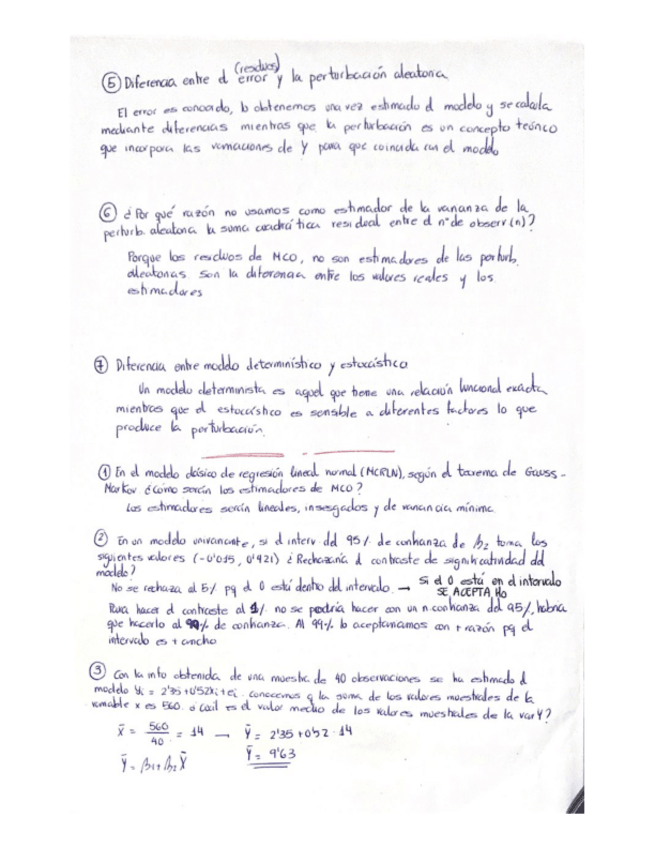 (residuos)
⑤ Diferencia entre el error y la perturbación aleatoria
El error es conocido, lo obtenemos una vez estimado el modelo y se calcula
mediante diferencias mientras que la perturbación es un concepto teórico
que incorpora las variaciones de Y para que coincida con el modelo
⑥ ¿Por qué razón no usamos como estimador de la varianza de la
perturb. aleatoria la suma cuadrática residual entre el nº de observ (n)?
Porque los residuos de MCO, no son estimadores de las perturb.
aleatorias. Son la diferencia entre los valores reales y los
estimadores
⑦ Diferencia entre modelo determinístico y estocástico
Un modelo determinista es aquel que tiene una relación funcional exacta
mientras que el estocástico es sensible a diferentes factores lo que
produce la perturbación.
① En el modelo clásico de regresión lineal normal (MCRLN), según el teorema de Gauss-
Markov ¿cómo serán los estimadores de MCO?
Los estimadores serán lineales, insesgados y de varianza mínima.
② En un modelo univariante, si el interv. del 95% de confianza de β2 toma los
siguientes valores (-0'015, 0'421) ¿Rechazaría el contraste de significatividad del
modelo?
No se rechaza al 5% pq el 0 está dentro del intervalo. → Si el 0 está en el intervalo
SE ACEPTA H0
Para hacer el contraste al 1% no se podría hacer con un n. confianza del 95%, habría
que hacerlo al 99% de confianza. Al 99% lo aceptaríamos con + razón pq el
intervalo es + ancho
③ Con la info obtenida de una muestra de 40 observaciones se ha estimado el
modelo Yi = 2'35 + 0'52Xi + ei. conocemos q la suma de los valores muestrales de la
variable x es 560. ¿cuál es el valor medio de los valores muestrales de la var Y?
X̄ = 560/40 = 14 → Ȳ = 2'35 + 0'52 · 14
Ȳ = β1 + β2 X̄ Ȳ = 9'63